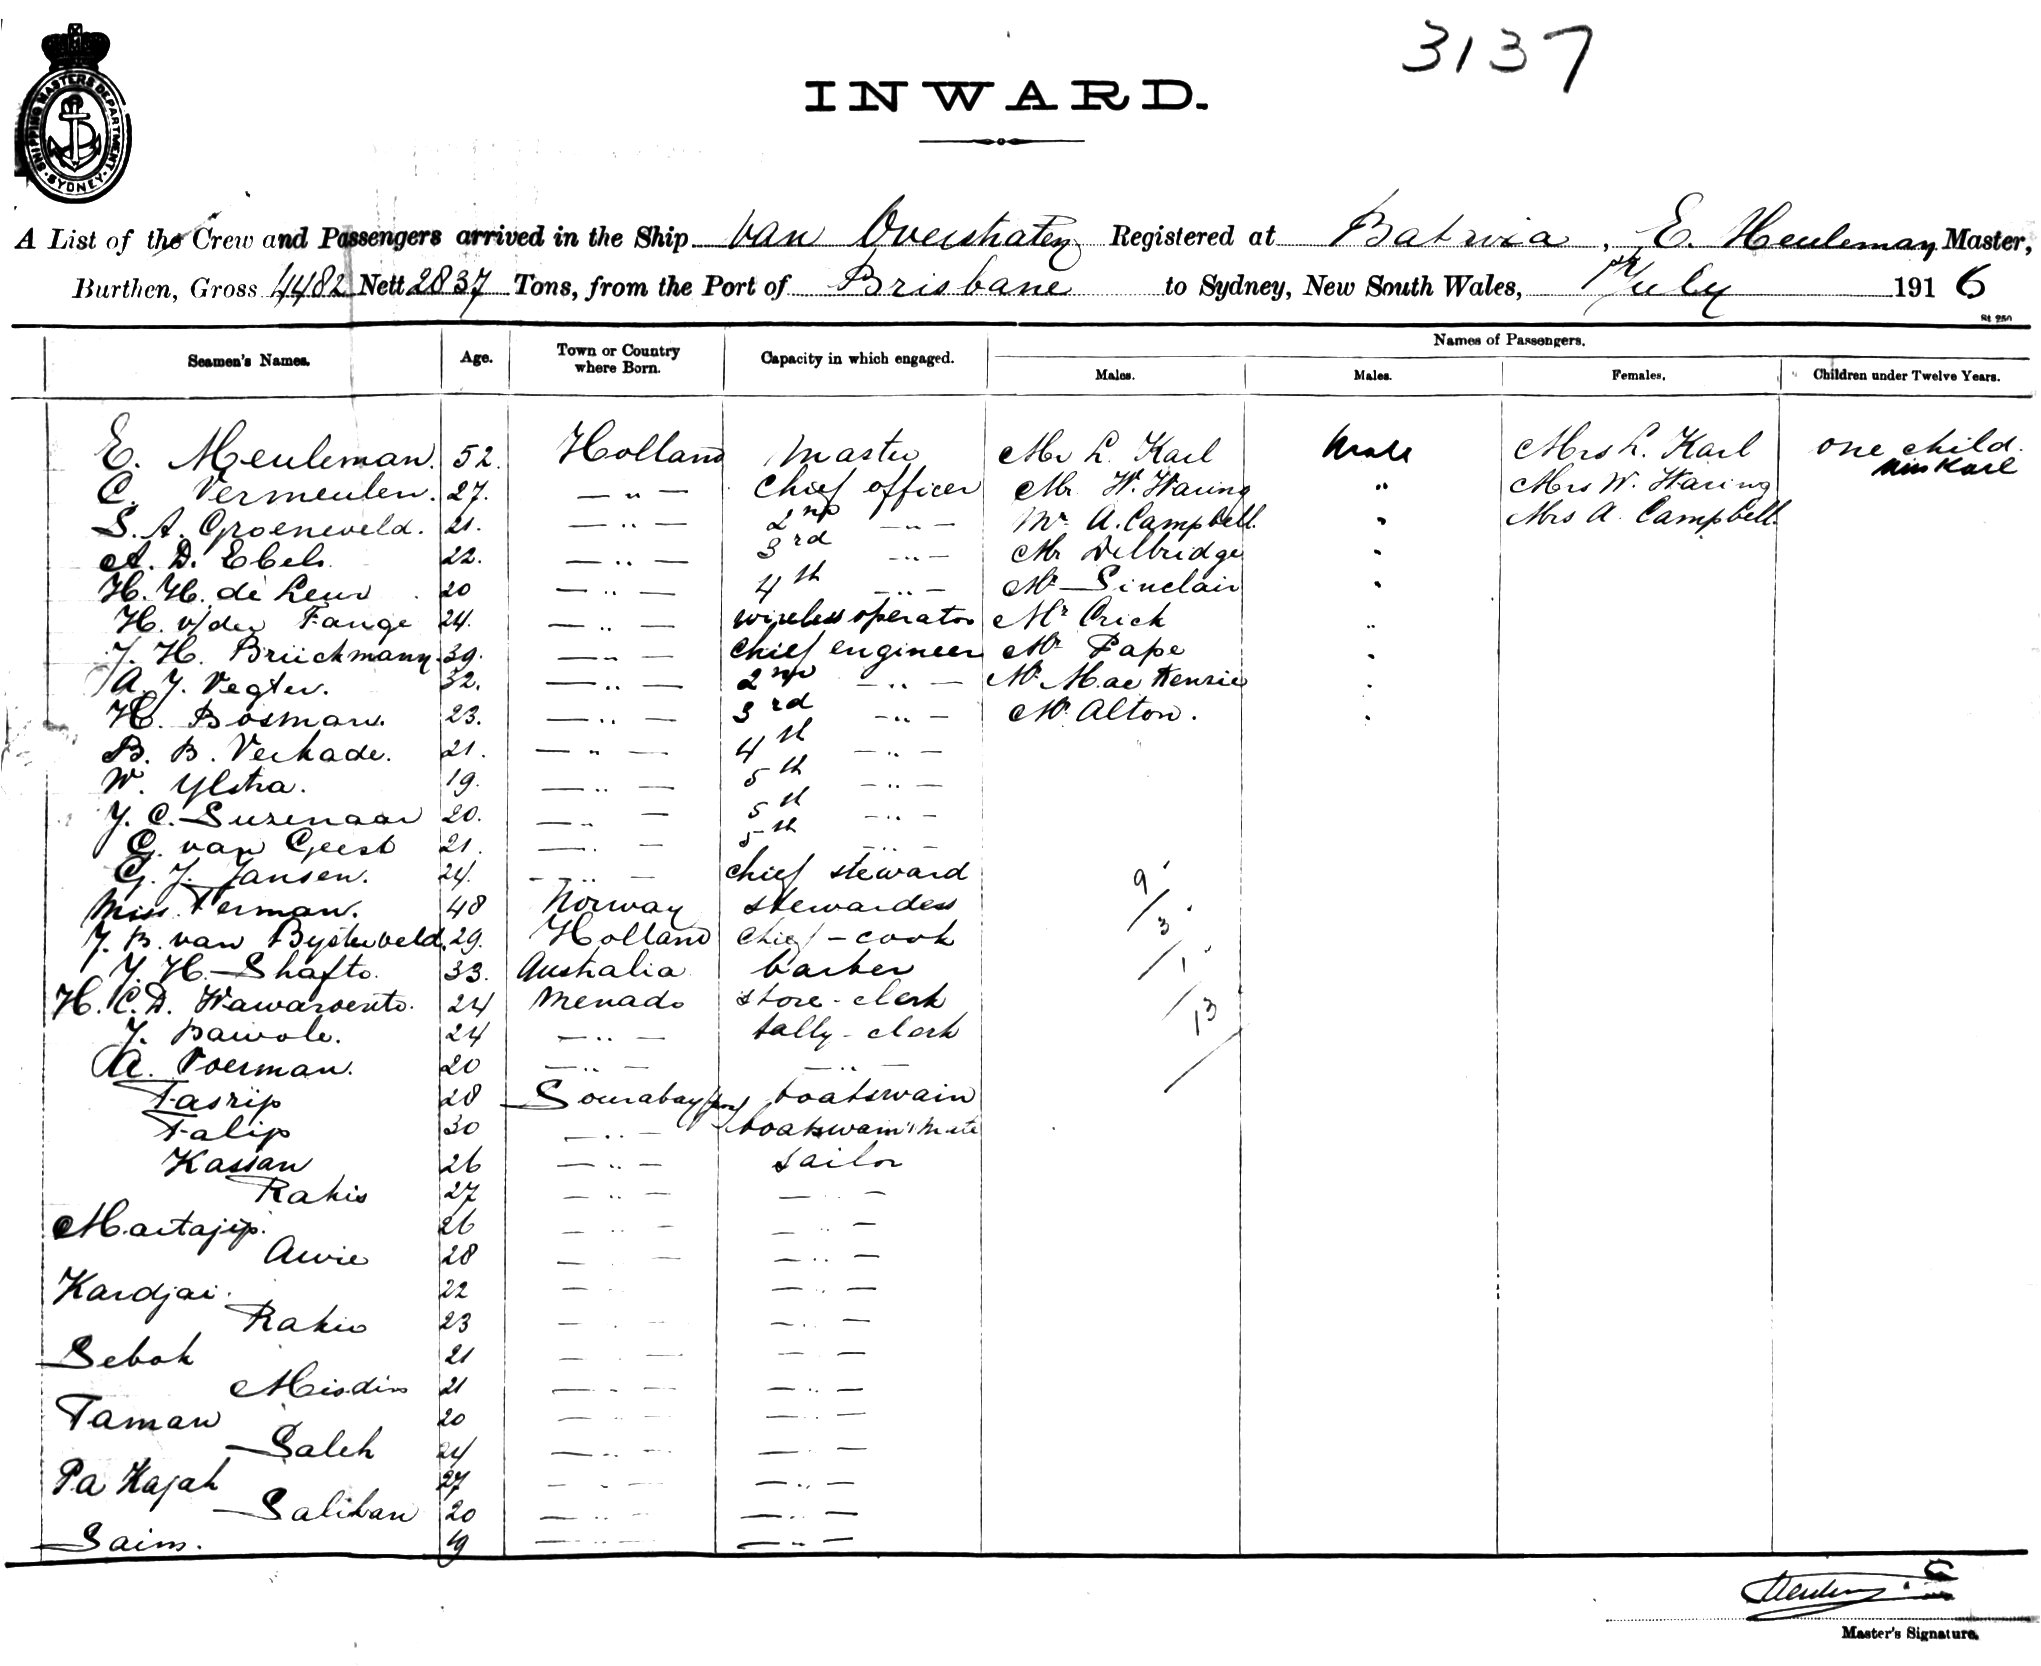 3137
SHIPPING MASTERS DEPARTMENT SYDNEY
INWARD.
A List of the Crew and Passengers arrived in the Ship van Overstraten Registered at Batavia, E. Meuleman Master,
Burthen, Gross 4482 Nett 2837 Tons, from the Port of Brisbane to Sydney, New South Wales, July 1916
St 250
Names of Passengers.
Seamen's Names. Age. Town or Country where Born. Capacity in which engaged. Males. Males. Females. Children under Twelve Years.
E. Meuleman. 52. Holland Master Mr L. Karl Mrs L. Karl one child.
Miss Karl
C. Vermeulen. 27. — " — Chief officer Mr. W. Waring " Mrs W. Waring
S. A. Groeneveld. 21. — " — 2nd — " — Mr A. Campbell. " Mrs A. Campbell.
A. D. Ebels. 22. — " — 3rd — " — Mr Delbridge "
H. H. de Leur 20 — " — 4th — " — Mr Sinclair "
H. v/der Tange 24. — " — wireless operator Mr Crick "
J. H. Brückmann. 39. — " — Chief engineer Mr Pape "
A. J. Vegter. 32. — " — 2nd — " — Mr Mac Kenzie "
H. Bosman. 23. — " — 3rd — " — Mr Alton. "
B. B. Verkade. 21. — " — 4th — " —
W. Ylstra. 19. — " — 5th — " —
J. C. Suzenaar 20. — " — 5th — " —
G. van Geest 21. — " — 5th — " —
G. J. Jansen. 24. — " — chief steward 9
Miss Terman. 48 Norway stewardess 3
J. B. van Bysterveld. 29. Holland Chief-cook
J. H. Shafto. 33. Australia barber 1
H. C. D. Wawaroento. 24 Menado store-clerk 13
J. Bawole. 24 — " — tally-clerk
A. Poerman. 20 — " — — " —
Tasrip 28 Sourabaya boatswain
Talip 30 — " — boatswain's mate
Kassan 26 — " — sailor
Rakis 27 — " — — " —
Martajip. 26 — " — — " —
Awie 28 — " — — " —
Kardjai. 22 — " — — " —
Rakio 23 — " — — " —
Sebok 21 — " — — " —
Misdin 21 — " — — " —
Taman 20 — " — — " —
Saleh 24 — " — — " —
Pa Kajah 27 — " — — " —
Saliban 20 — " — — " —
Saim. 19 — " — — " —
Master's Signature.